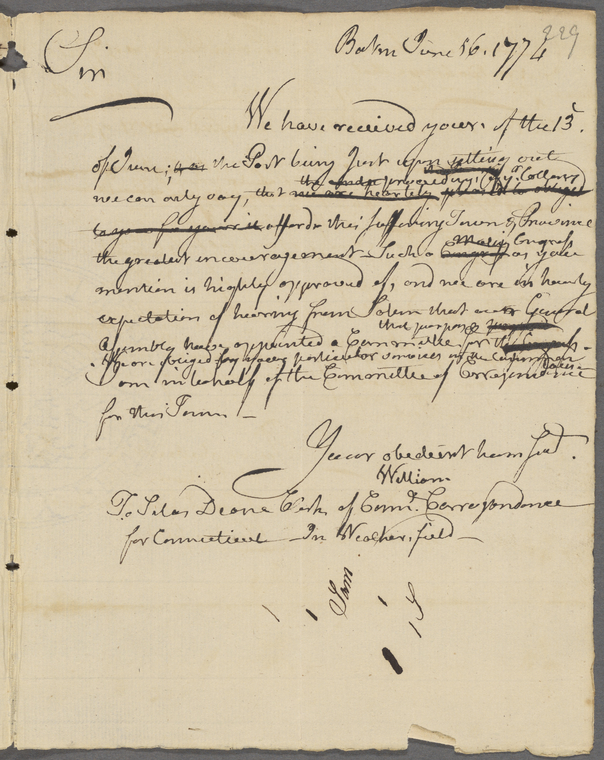 229
Boston June 16. 1774
Sir
We have received yours of the 13th
of June; the Post being Just upon setting out
the proceedings of yr. Colony
we can only say, that we are heartily obliged
affords this suffering Town & Province
the greatest incouragement - Such a Congress as you
mention is highly approved of, and we are in hourly
expectation of hearing from Salem that our General
that purpose
Assembly have appointed a Committee for
We are obliged for your particular services in the
I am in behalf of the Committee of Correspondence
for this Town -
Your obedient hum Servt.
William
To Silas Deane Clerk of Comm. Correspondence
for Connecticut - In Weathersfield -
Sam
S